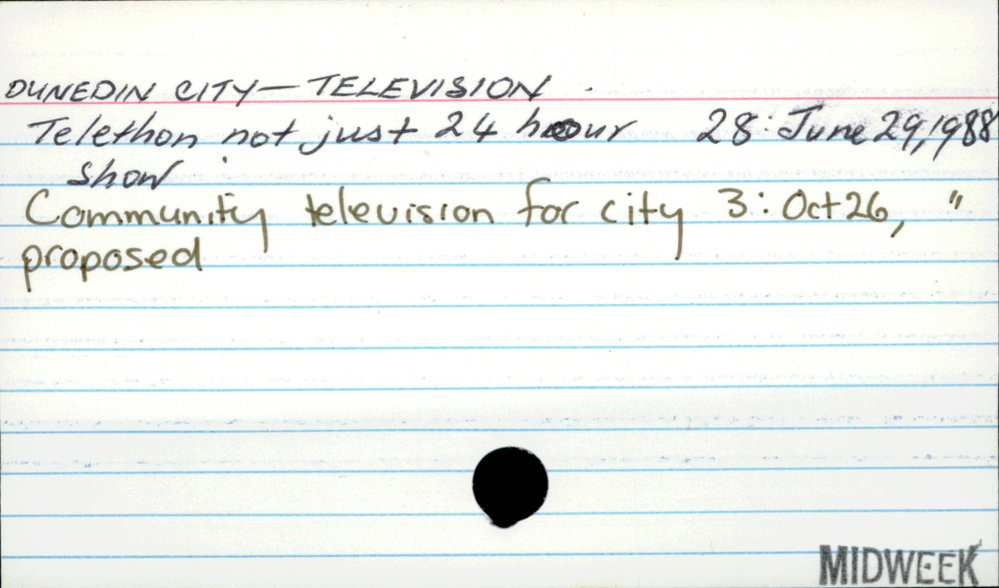 DUNEDIN CITY — TELEVISION
Telethon not just 24 hour 28: June 29, 1988
show
Community television for city 3: Oct 26, "
proposed
MIDWEEK